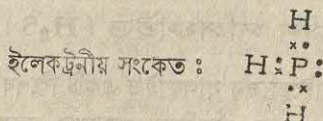 H
ইলেকট্রনীয় সংকেত : H : P :
H